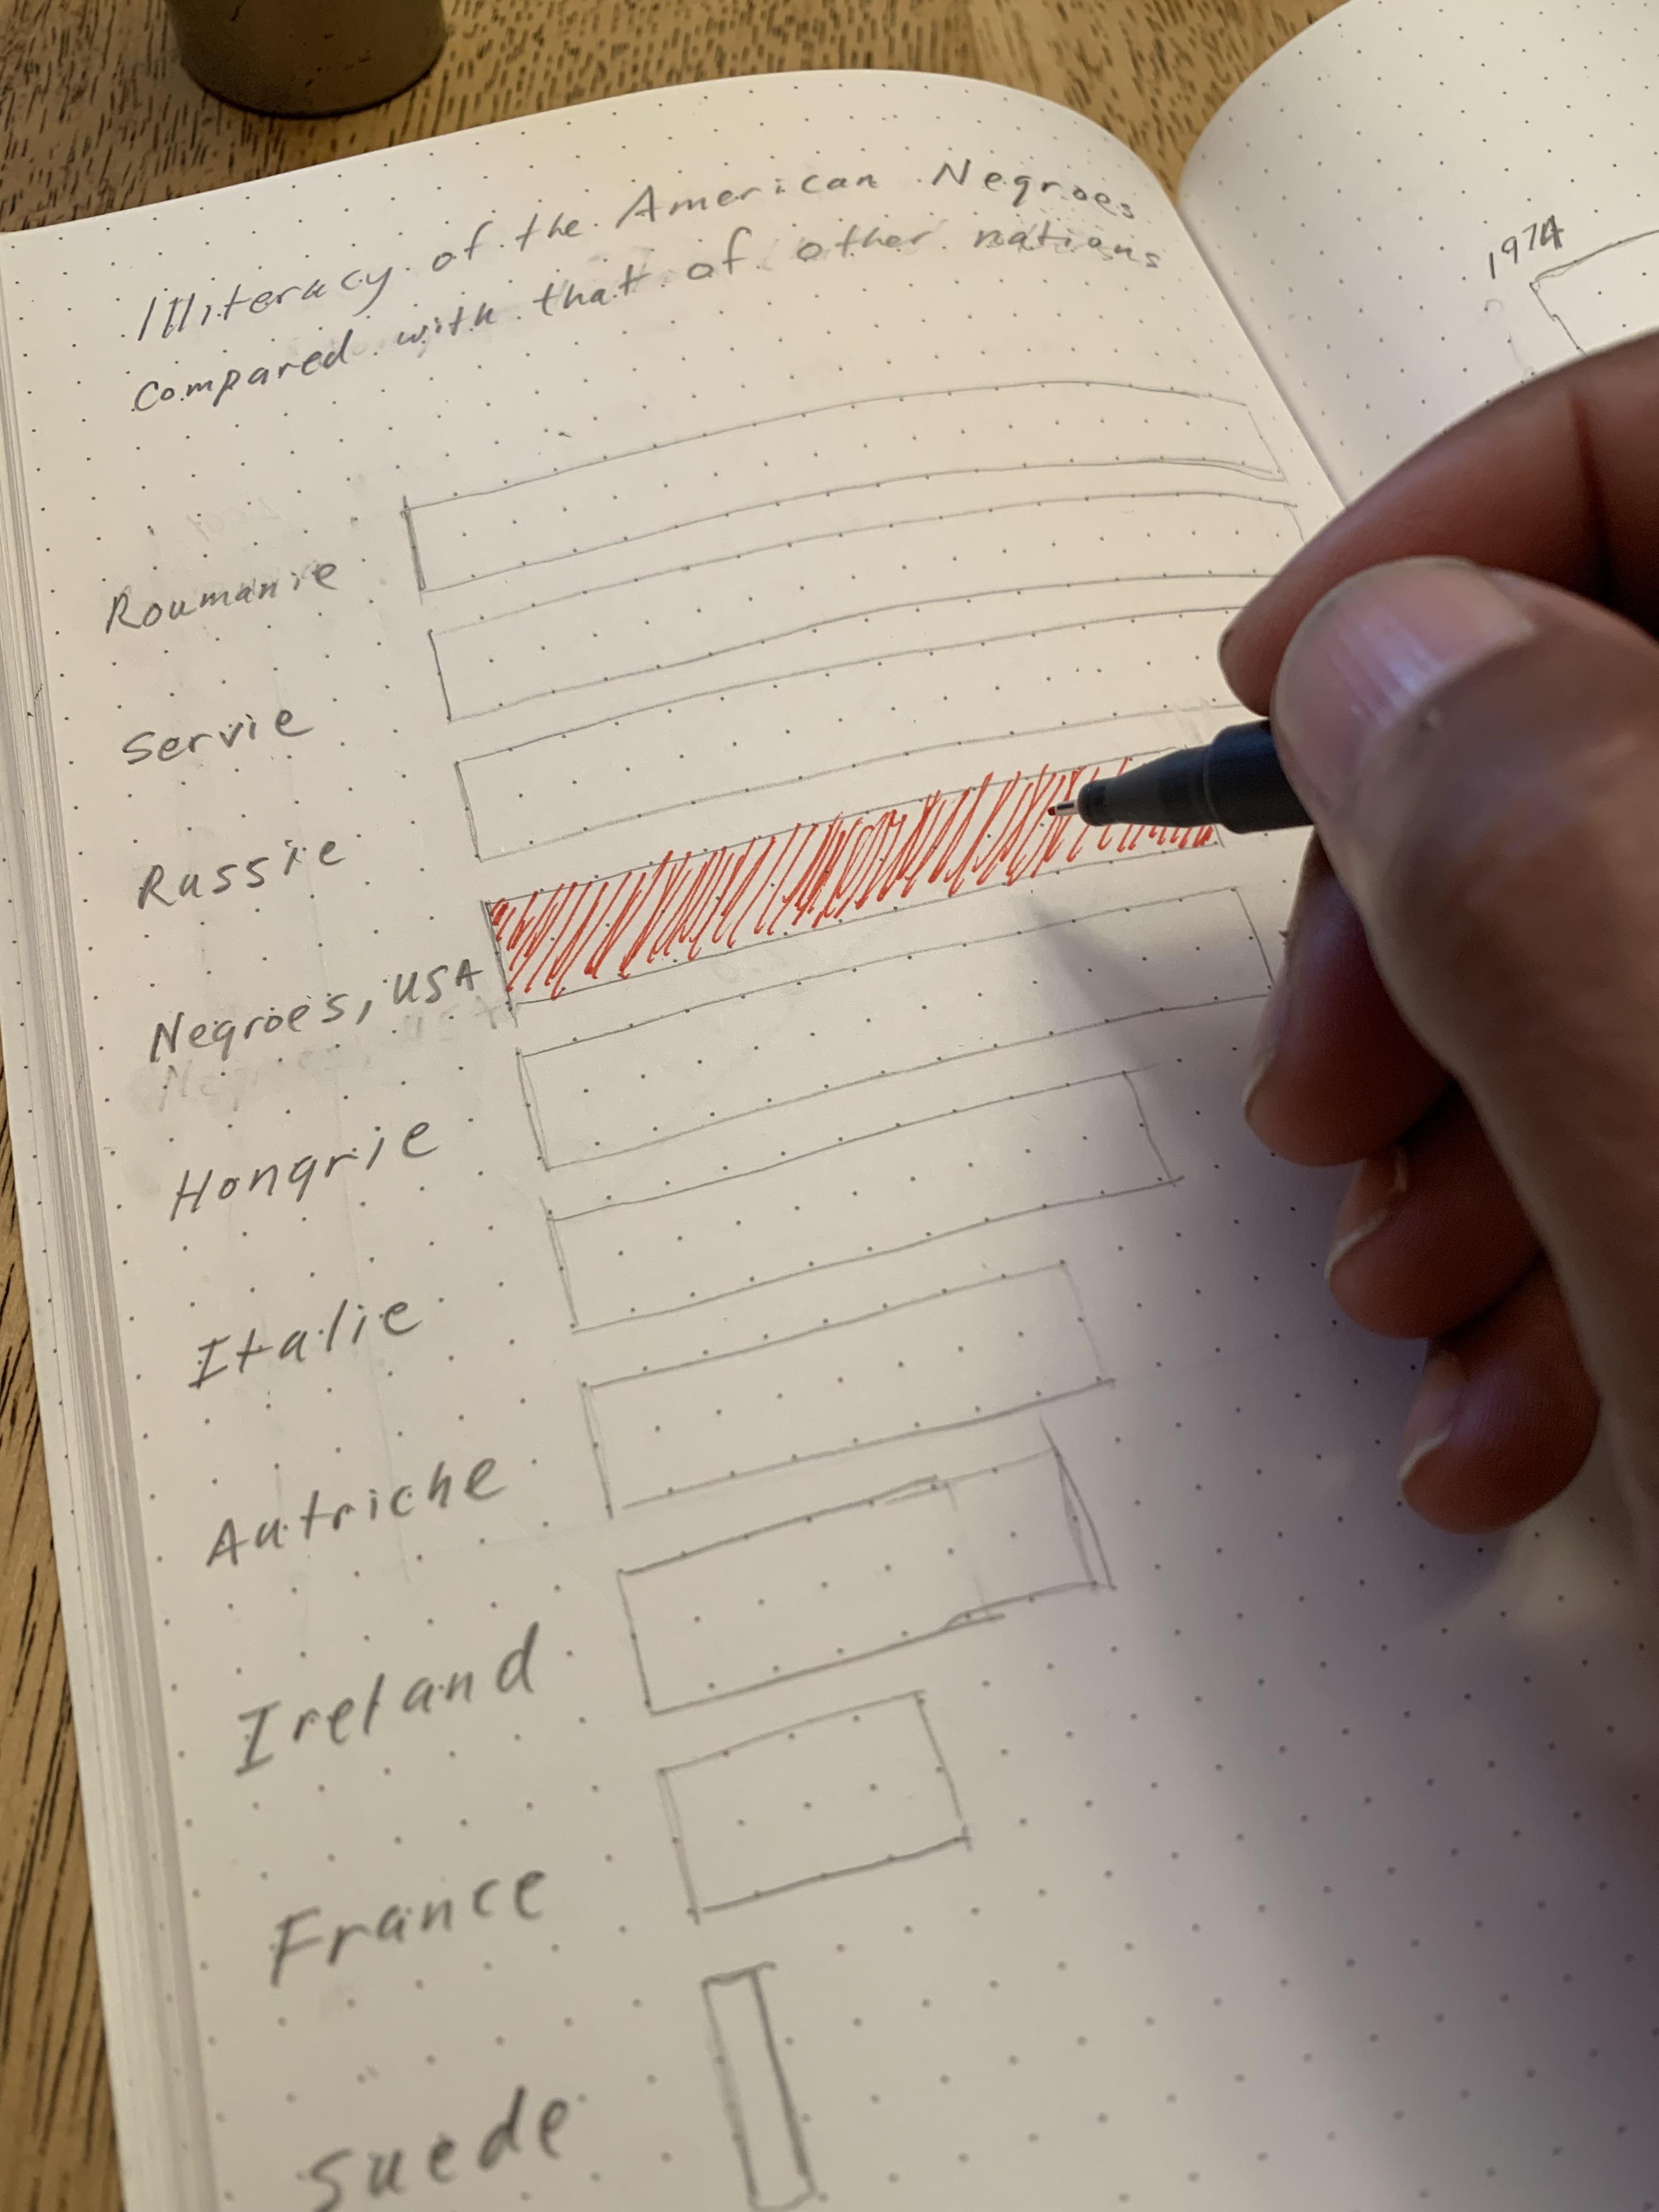 Illiteracy of the American Negroes
compared with that of of other nations
1974
Roumanie
Servie
Russie
Negroes, USA
Hongrie
Italie
Autriche
Ireland
France
Suede